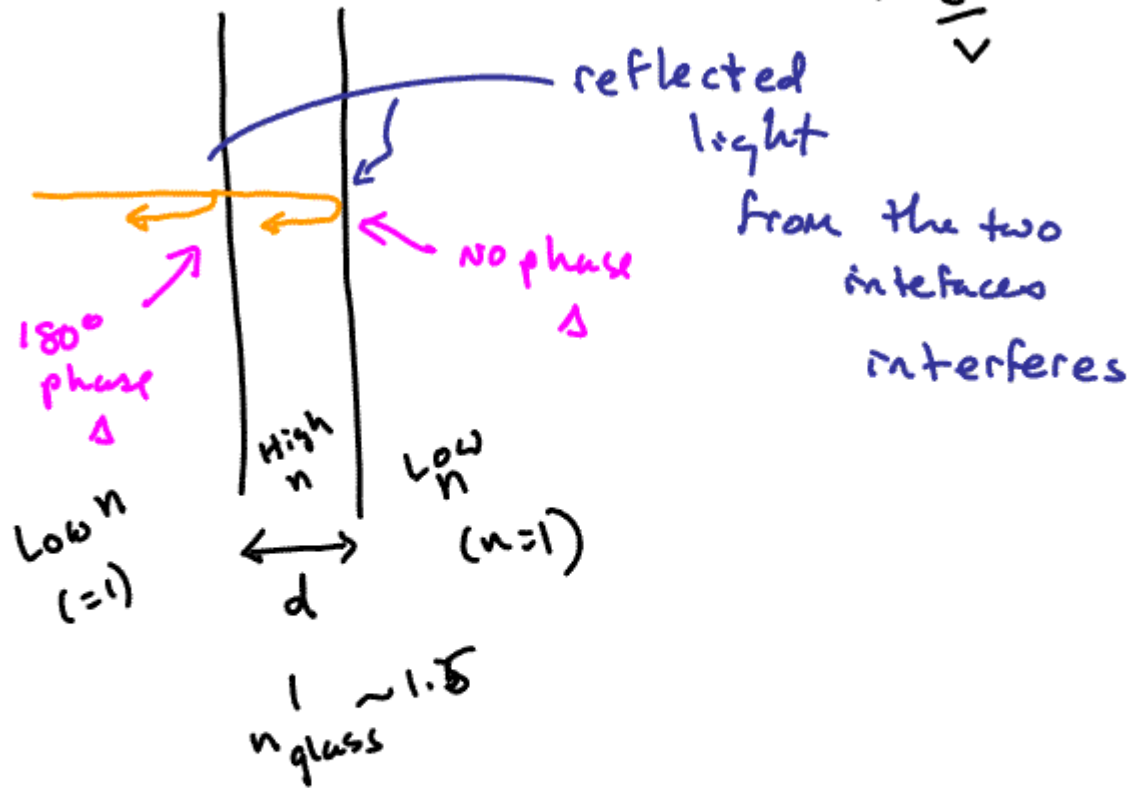 v
reflected
light
from the two
intefaces
interferes
NO phase
Δ
180°
phase
Δ
High
n
Low n
(=1)
Low
n
(n=1)
d
n glass ~1.5